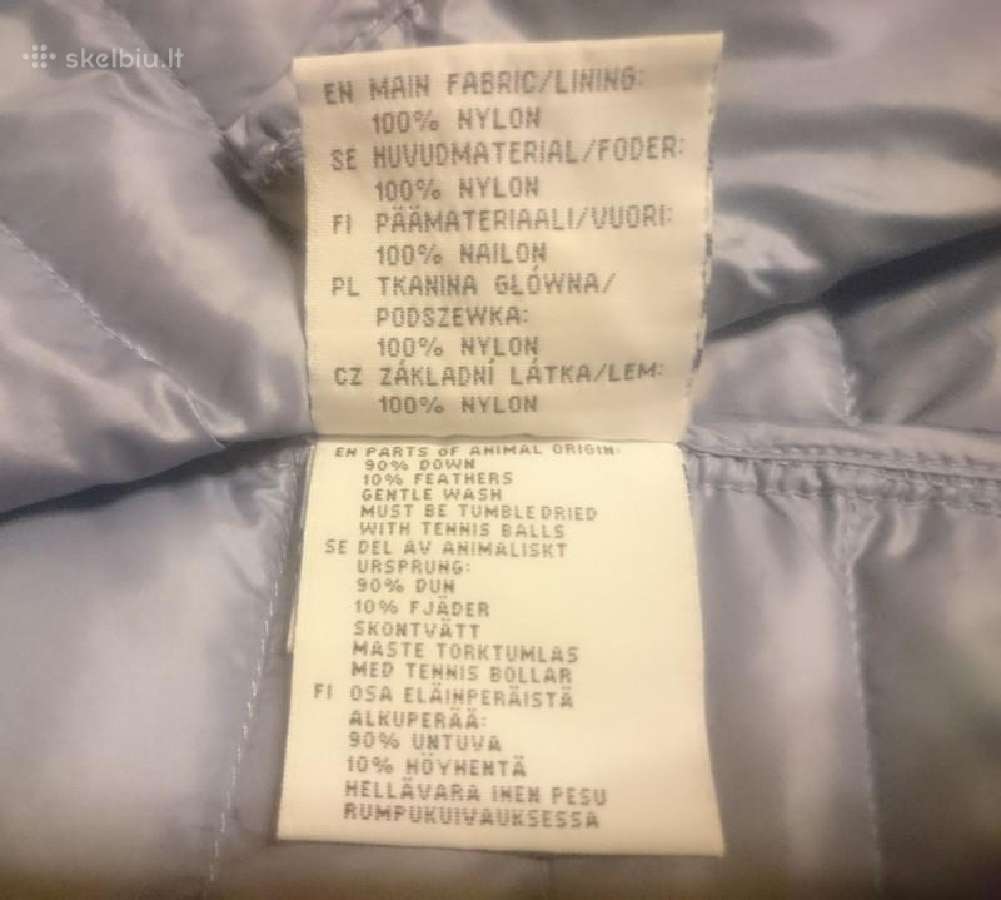 skelbiu.lt
EN MAIN FABRIC/LINING:
100% NYLON
SE HUVUDMATERIAL/FODER:
100% NYLON
FI PÄÄMATERIAALI/VUORI:
100% NAILON
PL TKANINA GŁÓWNA/
PODSZEWKA:
100% NYLON
CZ ZÁKLADNÍ LÁTKA/LEM:
100% NYLON
EN PARTS OF ANIMAL ORIGIN:
90% DOWN
10% FEATHERS
GENTLE WASH
MUST BE TUMBLEDRIED
WITH TENNIS BALLS
SE DEL AV ANIMALISKT
URSPRUNG:
90% DUN
10% FJÄDER
SKONTVÄTT
MASTE TORKTUMLAS
MED TENNIS BOLLAR
FI OSA ELÄINPERÄISTÄ
ALKUPERÄÄ:
90% UNTUVA
10% HÖYHENTÄ
HELLÄVARA INEN PESU
RUMPUKUIVAUKSESSA